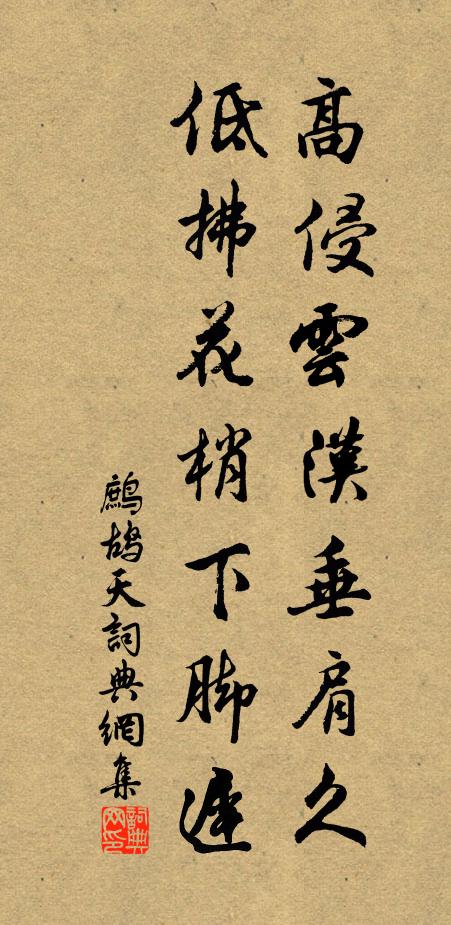 高侵雲漢垂肩久
低拂花梢下脚遲
鷓鴣天詞典網集
詞典
网印